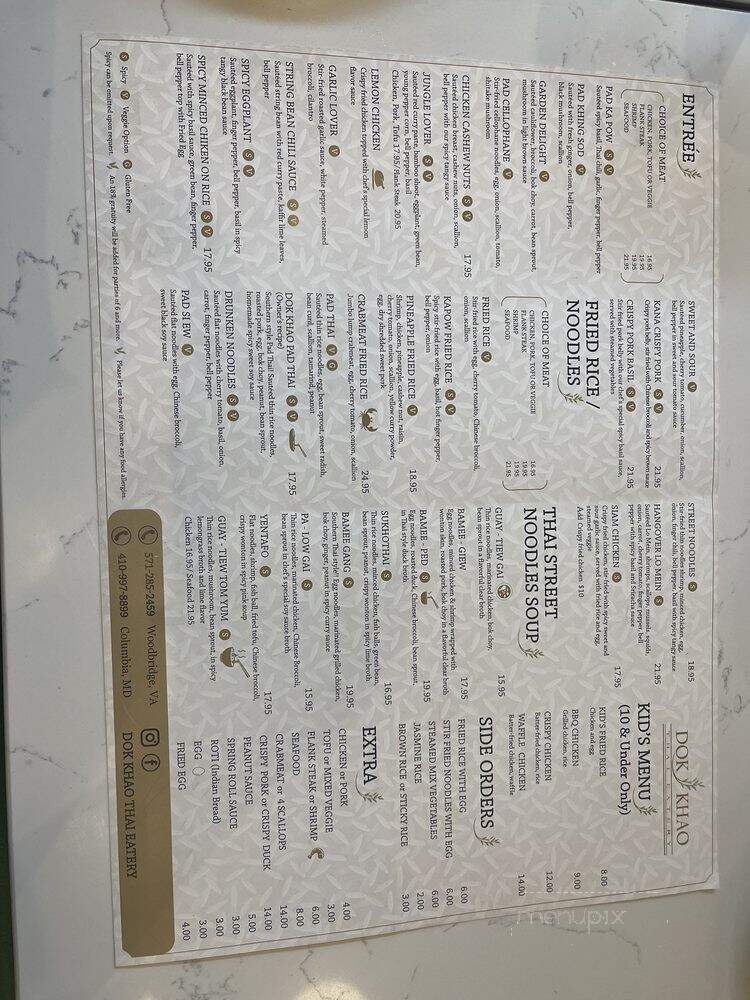 ENTRÉE
CHOICE OF MEAT
CHICKEN, PORK, TOFU OR VEGGIE 16.95
FLANK STEAK 19.95
SHRIMP 19.95
SEAFOOD 21.95
PAD KA POW S V
Sauteed spicy basil, Thai chili, garlic, finger pepper, bell pepper
PAD KHING SOD V
Sauteed with fresh ginger, onion, bell pepper,
black mushroom, scallion
GARDEN DELIGHT V
Sauteed cauliflower, broccoli, bok choy, carrot, bean sprout,
mushroom in light brown sauce
PAD CELLOPHANE V
Stir-fried cellophane noodles, egg, onion, scallion, tomato,
shitake mushroom
CHICKEN CASHEW NUTS S V 17.95
Sauteed chicken breast, cashew nuts, onion, scallion,
bell pepper with our spicy tangy sauce
JUNGLE LOVER S V
Sauteed red curry paste, bamboo shoot, eggplant, green bean,
young pepper corn, bell pepper, basil
Chicken, Pork, Tofu 17.95/ Flank Steak 20.95
LEMON CHICKEN
Crispy fried chicken topped with chef's special lemon
flavor sauce
GARLIC LOVER V
Stir-fried roasted garlic sauce, white pepper, steamed
broccoli, cilantro
STRING BEAN CHILI SAUCE S V
Sauteed string bean with red curry paste, kaffir lime leaves,
bell pepper
SPICY EGGPLANT S V
Sauteed eggplant, finger pepper, bell pepper, basil in spicy
tangy black bean sauce
SPICY MINCED CHIKEN ON RICE S V 17.95
Sauteed with spicy basil sauce, green bean, finger pepper,
bell pepper top with Fried Egg
SWEET AND SOUR V
Sauteed pineapple, cherry tomato, cucumber, onion, scallion,
bell pepper in sweet and sour tomato sauce
KANA CRISPY PORK S V 21.95
Crispy pork belly, stir fried with Chinese broccoli and spicy brown sauce
CRISPY PORK BASIL S V 21.95
Stir fried pork belly with our chef's special spicy basil sauce,
served with steamed vegetables
FRIED RICE /
NOODLES
CHOICE OF MEAT
CHICKEN, PORK, TOFU OR VEGGIE 16.95
FLANK STEAK 19.95
SHRIMP 19.95
SEAFOOD 21.95
FRIED RICE V
Stir fried rice with egg, cherry tomato, Chinese broccoli,
onion, scallion
KAPOW FRIED RICE S V
Spicy stir-fried rice with egg, basil, hot finger pepper,
bell pepper, onion
PINEAPPLE FRIED RICE V 18.95
Shrimp, chicken, pineapple, cashew nut, raisin,
cherry tomato, onion, scallion, yellow curry powder,
egg, dry shredded sweet pork
CRABMEAT FRIED RICE 24.95
Jumbo lump crabmeat, egg, cherry tomato, onion, scallion
PAD THAI V G
Sauteed thin rice noodles, egg, bean sprout, sweet radish,
bean curd, scallion, tamarind, peanut
DOK KHAO PAD THAI S 17.95
(Owner's recipe)
Southern style Pad Thai! Sauteed thin rice noodles,
roasted pork, egg, bok choy, peanut, bean sprout,
homemade spicy sweet soy sauce
DRUNKEN NOODLES S V
Sauteed flat noodles with cherry tomato, basil, onion,
carrot, finger pepper, bell pepper
PAD SI EW V
Sauteed flat noodles with egg, Chinese broccoli,
sweet black soy sauce
STREET NOODLES S 18.95
Stir-fried thin noodles shrimp, minced chicken, egg,
onion, finger chili, bell pepper, basil with spicy tangy sauce
HANGOVER LO MEIN S 21.95
Sauteed Lo Mein, shrimps, scallops, mussels, squids,
onion, carrot, cherry tomato, finger pepper, bell
pepper with spicy basil and Sriracha sauce
SIAM CHICKEN S 17.95
Crispy fried chicken, stir-fried with spicy sweet and
sour garlic sauce, served with fried rice and egg,
steamed veggie
Add Crispy fried chicken $10
THAI STREET
NOODLES SOUP
GUAY - TIEW GAI 15.95
Thin rice noodles, marinated chicken, bok choy,
bean sprout in a flavorful clear broth
BAMEE - GIEW 17.95
Egg noodles, minced chicken & shrimp wrapped with
wonton skin, roasted pork, bok choy in a flavorful clear broth
BAMEE - PED S 19.95
Egg noodles, roasted duck, Chinese broccoli, bean sprout,
in Thai style duck broth
SUKHOTHAI S 16.95
Thin rice noodles, minced chicken, fish balls, green bean,
bean sprout, peanut, crispy wonton in spicy lime broth
BAMEE GANG S 19.95
Southern Thai style! Egg noodles, marinated grilled chicken,
bok choy, ginger, peanut in spicy curry sauce
PA - LOW GAI S 15.95
Thin rice noodles, marinated chicken, Chinese Broccoli,
bean sprout in chef's special soy sauce broth
YENTAFO S 17.95
Flat noodles, shrimp, fish ball, fried tofu, Chinese broccoli,
crispy wonton in spicy pink soup
GUAY - TIEW TOM YUM S
Thin rice noodles, mushroom, bean sprout, in spicy
lemongrass broth and lime flavor
Chicken 16.95/ Seafood 21.95
DOK KHAO
THAI EATERY
KID'S MENU
(10 & Under Only)
KID'S FRIED RICE 8.00
Chicken and egg
BBQ CHICKEN 9.00
Grilled chicken, rice
CRISPY CHICKEN 12.00
Batter-fried chicken, rice
WAFFLE CHICKEN 14.00
Batter-fried chicken, waffle
SIDE ORDERS
FRIED RICE WITH EGG 6.00
STIR FRIED NOODLES WITH EGG 6.00
STEAMED MIX VEGETABLES 6.00
JASMINE RICE 2.00
BROWN RICE or STICKY RICE 3.00
EXTRA
CHICKEN or PORK 4.00
TOFU or MIXED VEGGIE 3.00
FLANK STEAK or SHRIMP 6.00
SEAFOOD 8.00
CRABMEAT or 4 SCALLOPS 14.00
CRISPY PORK or CRISPY DUCK 14.00
PEANUT SAUCE 5.00
SPRING ROLL SAUCE 3.00
ROTI (Indian Bread) 3.00
EGG 3.00
FRIED EGG 4.00
S Spicy V Veggie Option G Gluten Free
Spicy can be omitted upon request. An 18% gratuity will be added for parties of 6 and more. Please let us know if you have any food allergies.
571-285-2459 Woodbridge, VA
410-997-8899 Columbia, MD
DOK KHAO THAI EATERY
menupix